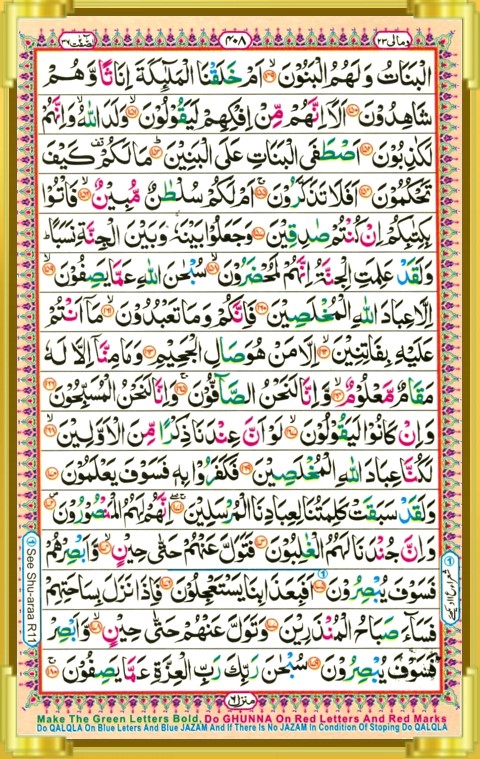 وَمَالِيَ ٢٣
٤٠٨
الصّٰٓفّٰت ٣٧
الْبَنَاتُ وَلَهُمُ الْبَنُوْنَ ۙ﴿۱۴۹﴾ اَمْ خَلَقْنَا الْمَلٰٓئِكَةَ اِنَاثًا وَّهُمْ
شَاهِدُوْنَ ﴿۱۵۰﴾ اَلَاۤ اِنَّهُمْ مِّنْ اِفْكِهِمْ لَيَقُوْلُوْنَ ۙ﴿۱۵۱﴾ وَلَدَ اللّٰهُ ۙ وَاِنَّهُمْ
لَكٰذِبُوْنَ ﴿۱۵۲﴾ اَصْطَفَى الْبَنَاتِ عَلَى الْبَنِيْنَ ؕ﴿۱۵۳﴾ مَا لَكُمْ ࣞ كَيْفَ
تَحْكُمُوْنَ ﴿۱۵۴﴾ اَفَلَا تَذَكَّرُوْنَ ۚ﴿۱۵۵﴾ اَمْ لَكُمْ سُلْطٰنٌ مُّبِيْنٌ ۙ﴿۱۵۶﴾ فَاْتُوْا
بِكِتٰبِكُمْ اِنْ كُنْتُمْ صٰدِقِيْنَ ﴿۱۵۷﴾ وَجَعَلُوْا بَيْنَهٗ وَبَيْنَ الْجِنَّةِ نَسَبًا ؕ
وَلَقَدْ عَلِمَتِ الْجِنَّةُ اِنَّهُمْ لَمُحْضَرُوْنَ ۙ﴿۱۵۸﴾ سُبْحٰنَ اللّٰهِ عَمَّا يَصِفُوْنَ ۙ﴿۱۵۹﴾
اِلَّا عِبَادَ اللّٰهِ الْمُخْلَصِيْنَ ﴿۱۶۰﴾ فَاِنَّكُمْ وَمَا تَعْبُدُوْنَ ۙ﴿۱۶۱﴾ مَاۤ اَنْتُمْ
عَلَيْهِ بِفَاتِنِيْنَ ۙ﴿۱۶۲﴾ اِلَّا مَنْ هُوَ صَالِ الْجَحِيْمِ ﴿۱۶۳﴾ وَمَا مِنَّاۤ اِلَّا لَهٗ
مَقَامٌ مَّعْلُوْمٌ ۙ﴿۱۶۴﴾ وَّاِنَّا لَنَحْنُ الصَّآفُّوْنَ ۚ﴿۱۶۵﴾ وَاِنَّا لَنَحْنُ الْمُسَبِّحُوْنَ ﴿۱۶۶﴾
وَاِنْ كَانُوْا لَيَقُوْلُوْنَ ۙ﴿۱۶۷﴾ لَوْ اَنَّ عِنْدَنَا ذِكْرًا مِّنَ الْاَوَّلِيْنَ ۙ﴿۱۶۸﴾
لَكُنَّا عِبَادَ اللّٰهِ الْمُخْلَصِيْنَ ﴿۱۶۹﴾ فَكَفَرُوْا بِهٖ فَسَوْفَ يَعْلَمُوْنَ ﴿۱۷۰﴾
وَلَقَدْ سَبَقَتْ كَلِمَتُنَا لِعِبَادِنَا الْمُرْسَلِيْنَ ۚۖ﴿۱۷۱﴾ اِنَّهُمْ لَهُمُ الْمَنْصُوْرُوْنَ ۪﴿۱۷۲﴾
وَاِنَّ جُنْدَنَا لَهُمُ الْغٰلِبُوْنَ ﴿۱۷۳﴾ فَتَوَلَّ عَنْهُمْ حَتّٰى حِيْنٍ ۙ﴿۱۷۴﴾ وَّاَبْصِرْهُمْ
فَسَوْفَ يُبْصِرُوْنَ ﴿۱۷۵﴾ اَفَبِعَذَابِنَا يَسْتَعْجِلُوْنَ ﴿۱۷۶﴾ فَاِذَا نَزَلَ بِسَاحَتِهِمْ
فَسَآءَ صَبَاحُ الْمُنْذَرِيْنَ ﴿۱۷۷﴾ وَتَوَلَّ عَنْهُمْ حَتّٰى حِيْنٍ ۙ﴿۱۷۸﴾ وَّاَبْصِرْ
فَسَوْفَ يُبْصِرُوْنَ ﴿۱۷۹﴾ سُبْحٰنَ رَبِّكَ رَبِّ الْعِزَّةِ عَمَّا يَصِفُوْنَ ۚ﴿۱۸۰﴾
See Shu-araa R11
منزل ٦
Make The Green Letters Bold, Do GHUNNA On Red Letters And Red Marks
Do QALQLA On Blue Leters And Blue JAZAM And If There Is No JAZAM In Condition Of Stoping Do QALQLA